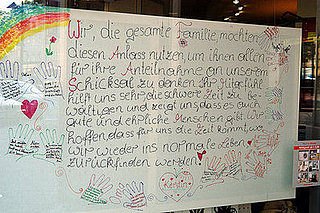 Wir, die gesamte Familie möchten
diesen Anlass nutzen, um ihnen allen
für ihre Anteilnahme an unserem
Schicksal zu danken. Ihr Mitgefühl
hilft uns sehr, die schwere Zeit zu be-
wältigen und zeigt uns, dass es auch
gute und ehrliche Menschen gibt. Wir
hoffen, dass für uns die Zeit kommt, wo
wir wieder ins normale Leben
zurückfinden werden.
Kerstin